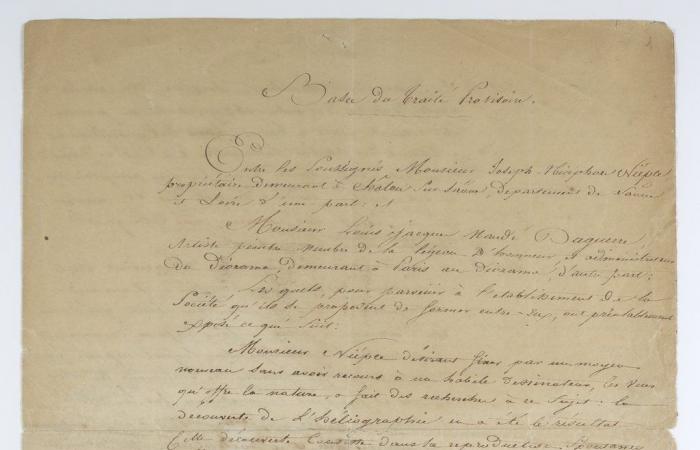 Bases du Traité Provisoire.
Entre les Soussignés Monsieur Joseph-Nicéphore Niépce
propriétaire demeurant à Châlon Sur Saône, département de Saône
et Loire d'une part : et
Monsieur Louis-jacques Mandé Daguerre,
Artiste peintre membre de la légion d'honneur, et administrateur
du Diorama, demeurant à Paris au Diorama, d'autre part ;
Les quels, pour parvenir à l'établissement de la
Société qu'ils se proposent de former entre-eux, ont préalablement
exposé ce qui Suit :
Monsieur Niépce désirant fixer par un moyen
nouveau Sans avoir recours à un habile dessinateur, les vues
qu'offre la nature, a fait des recherches à ce Sujet : la
découverte de l'héliographie en a été le résultat
Cette découverte Consiste dans la reproduction Spontanée